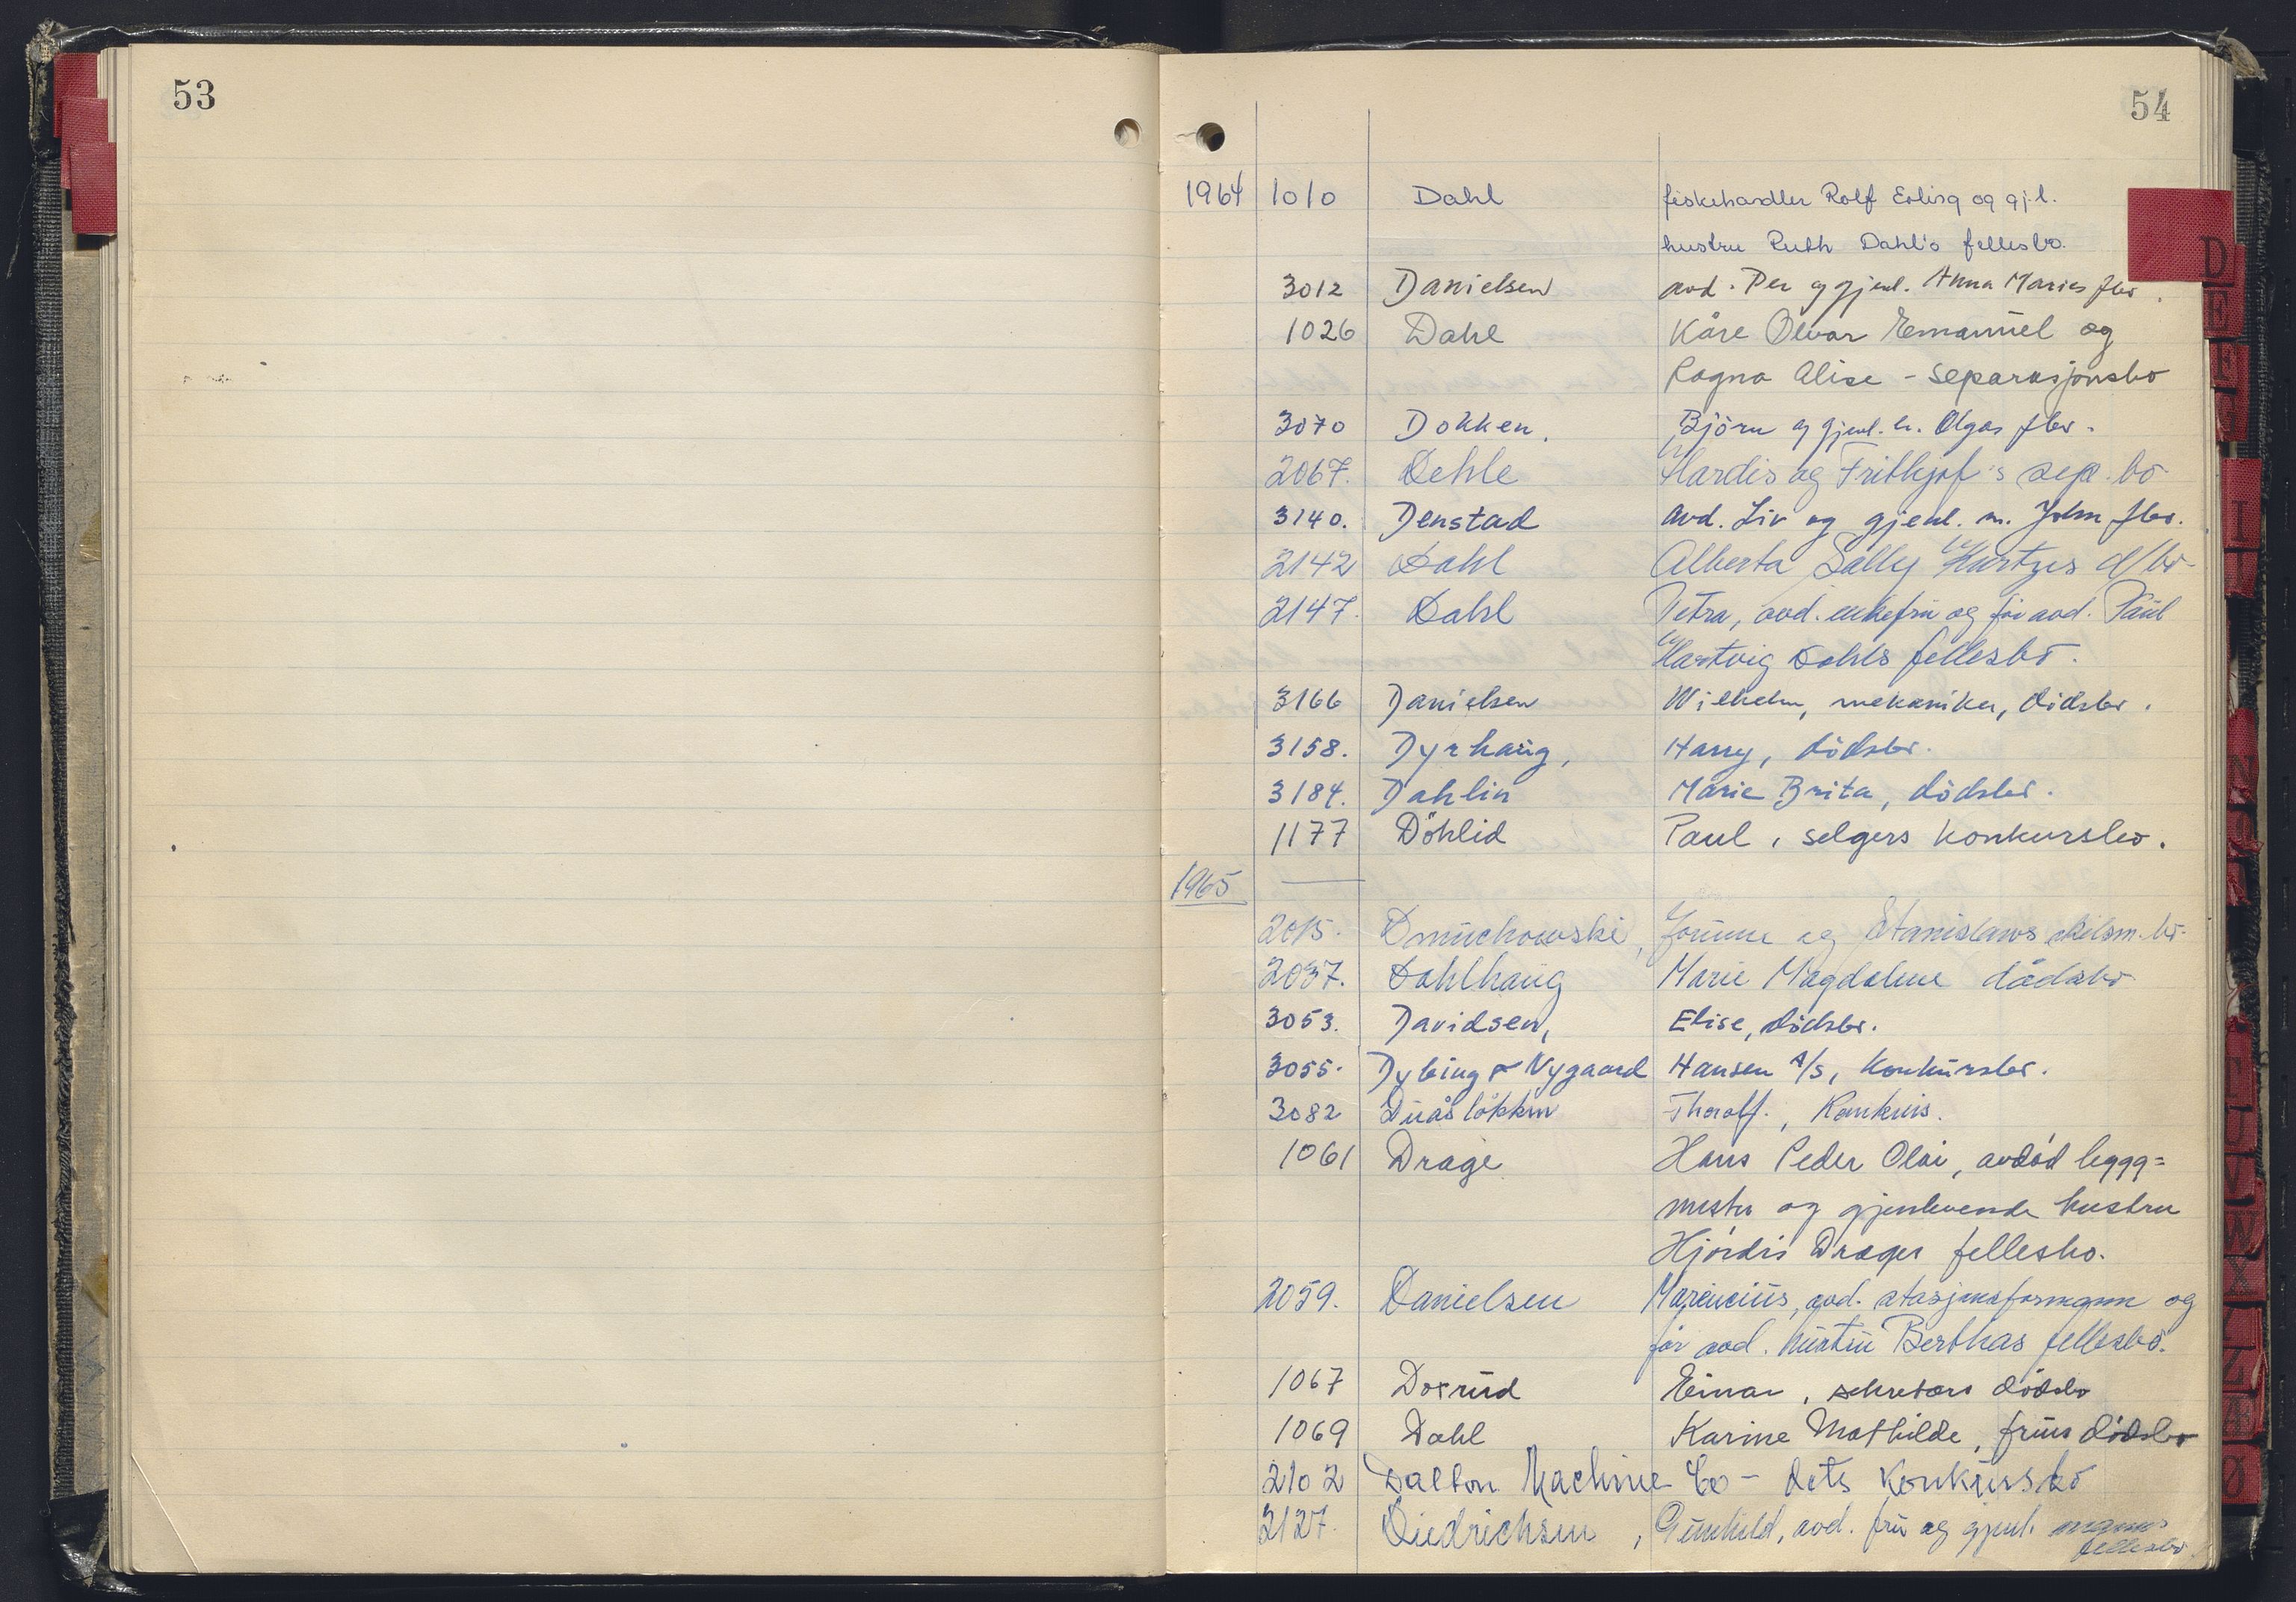 53
54
1964 1010 Dahl fiskehandler Rolf Erling og gj.l.
hustru Ruth Dahl's fellesbo.
3012 Danielsen avd. Per og gjenl. Anna Maries fbo.
1026 Dahl Kåre Olvar Emanuel og
Ragna Alise - separasjonsbo
3070 Dokken, Björn og gjenl. h. Olgas fbo.
2067. Dehle Hardis og Frithjof's sep. bo
3140. Denstad avd. Liv og gjenl. m. John fbo.
2142 Dahl Alberta Sally Hartzes d/bo
2147. Dahl Petra, avd. enkefru og før avd. Paul
Hartvig Dahls fellesbo.
3166 Danielsen Wilhelm, mekaniker, dödsbo.
3158. Dyrhaug, Harry, dödsbo.
3184. Dahlin Marie Brita, dödsbo.
1177 Döhlid Paul, selgers konkursbo.
1965
2015. Dmuchowski, Jorunn og Stanislaws skilsm. bo.
2037. Dahlhaug Marie Magdalene dødsbo
3053. Davidsen, Elise, dödsbo.
3055. Dybing & Nygaard Hansen A/S, Konkursbo.
3082 Duåsløkken Thoralf., Konkurs.
1061 Drage Hans Peder Olai, avdød legg=
mester og gjenlevende hustru
Hjördis Drages fellesbo.
2059. Danielsen Marencius, avd. stasjonsformann og
før avd. hustru Berthas fellesbo.
1067 Doxrud Einar, sekretærs dödsbo
1069 Dahl Karine Mathilde, frues dödsbo
2102 Dalton Machine Co - dets konkursbo
2127. Diedrichsen, Gunhild, avd. fru og gjenl. manns
fellesbo
D
E
F
G
I
N
U
V
W
X
Z
Æ
Ø